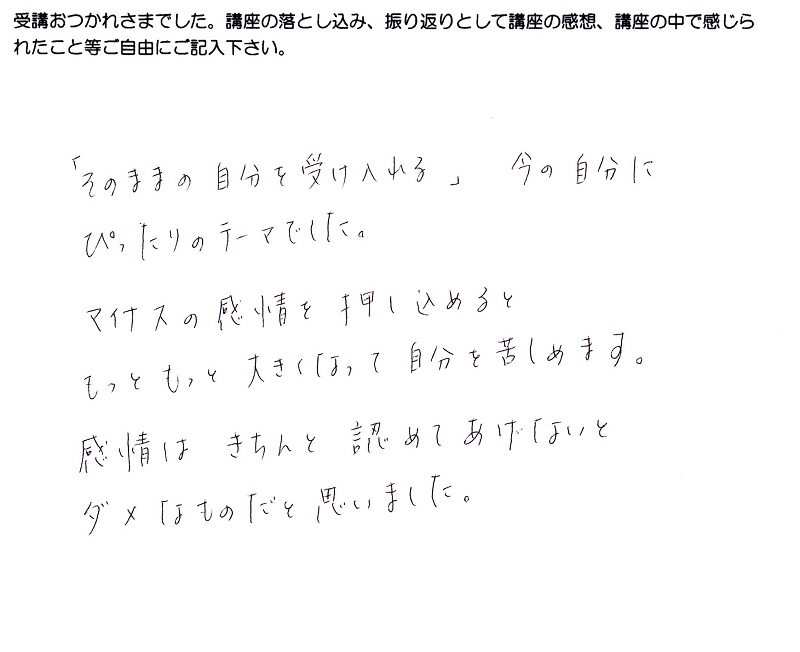 受講おつかれさまでした。講座の落とし込み、振り返りとして講座の感想、講座の中で感じら
れたこと等ご自由にご記入下さい。
「そのままの自分を受け入れる」 今の自分に
ぴったりのテーマでした。
マイナスの感情を押し込めると
もっともっと大きくなって自分を苦しめます。
感情はきちんと認めてあげないと
ダメなものだと思いました。